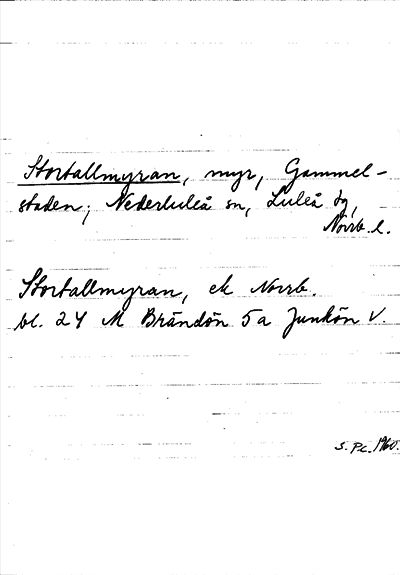 Stortallmyran, myr, Gammel-
staden; Nederluleå sn, Luleå tg,
Norrb. l.
Stortallmyran, ek Norrb.
bl. 24 M Brändön 5a Junkön V.
S. Pc. 1960.